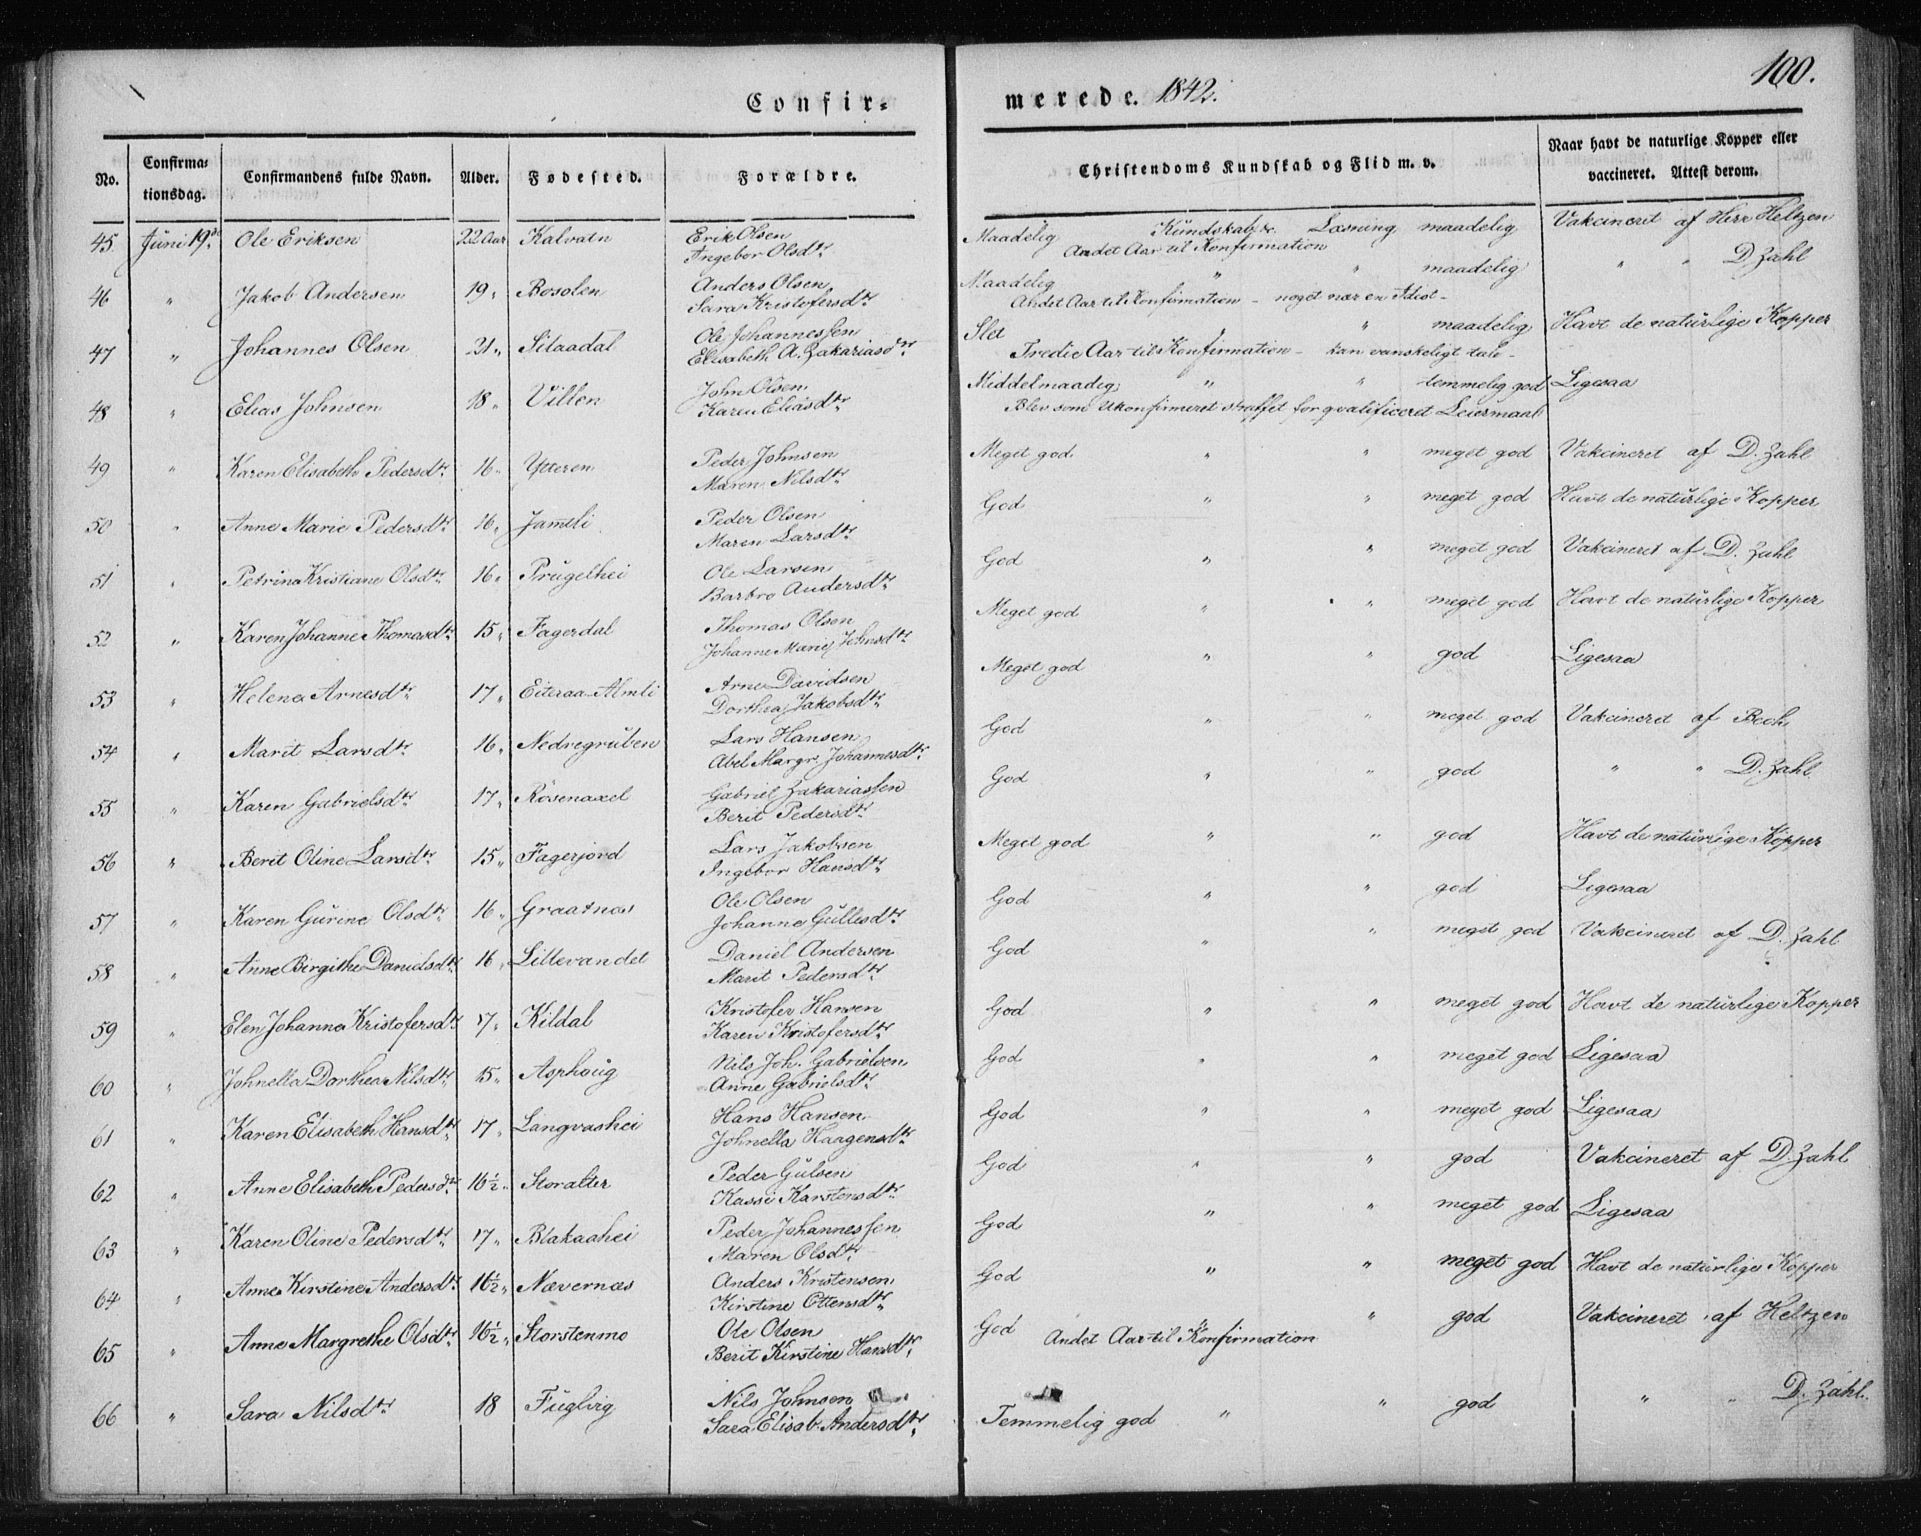 100.
Confir-
merede. 1842.
No.
Confirma-
tionsdag.
Confirmandens fulde Navn.
Alder.
Fødested.
Forældre.
Christendoms Kundskab og Flid m. v.
Naar havt de naturlige Kopper eller
vaccineret. Attest derom.
45 Juni 19de Ole Eriksen 22 Aar Kalvatn Erik Olsen Maadelig Kundskab &c. Læsning maadelig Vakcineret af Herr Heltzen
Ingebor Olsdtr Andet Aar til Konfirmation
46 " Jakob Andersen 19 " Bosolen Anders Olsen Maadelig " " maadelig " " D. Zahl
Sara Kristofersdtr Andet Aar til Konfirmation - noget nær en Idiot -
47 " Johannes Olsen 21 " Silaadal Ole Johannessen Slet " maadelig Havt de naturlige Kopper
Elisabeth A. Zakariasdtr Tredie Aar til Konfirmation - kan vanskeligt tale -
48 " Elias Johnsen 18 " Villen John Olsen Middelmaadig " " temmelig god Ligesaa
Karen Eliasdtr Blev som Ukonfirmeret straffet for qvalificeret Leiermaal
49 " Karen Elisabeth Pedersdtr 16 " Ytteren Peder Johnsen Meget god " " meget god Vakcineret af D. Zahl
Maren Nilsdtr
50 " Anne Marie Pedersdtr 16 " Jamtli Peder Olsen God " " meget god Havt de naturlige Kopper
Maren Larsdtr
51 " Petrina Kristiane Olsdtr 16 " Prügelhei Ole Larsen God " " meget god Vakcineret af D. Zahl
Barbro Andersdtr
52 " Karen Johanne Thomasdtr 15 " Fagerdal Thomas Olsen Meget god " " meget god Havt de naturlige Kopper
Johanne Marie Johnsdtr
53 " Helena Arnesdtr 17 " Eiteraa-Almli Arne Davidsen Meget god " " god Ligesaa
Dorthea Jakobsdtr
54 " Marit Larsdtr 16 " Nedregruben Lars Hansen God " " meget god Vakcineret af Bech
Abel Margr. Johannesdtr
55 " Karen Gabrielsdtr 17 " Rösenaxel Gabriel Zakariassen God " " god " " D. Zahl
Berit Pedersdtr
56 " Berit Oline Larsdtr 15 " Fagerjord Lars Jakobsen Meget god " " god Havt de naturlige Kopper
Ingebor Hansdtr
57 " Karen Gurine Olsdtr 16 " Graatnæs Ole Olsen God " " god Ligesaa
Johanne Gullesdtr
58 " Anne Birgithe Danielsdtr 16 " Lillevandet Daniel Andersen God " " meget god Vakcineret af D. Zahl
Marit Pedersdtr
59 " Elen Johanna Kristofersdtr 17 " Kildal Kristofer Hansen God " " meget god Havt de naturlige Kopper
Karen Kristofersdtr
60 " Johnella Dorthea Nilsdtr 15 " Asphoug Nils Joh. Gabrielsen God " " meget god Ligesaa
Anne Gabrielsdtr
61 " Karen Elisabeth Hansdtr 17 " Langvashei Hans Hansen God " " meget god Ligesaa
Johnella Haagensdtr
62 " Anne Elisabeth Pedersdtr 16½ " Storalter Peder Gulsen God " " god Vakcineret af D. Zahl
Kassi Karstensdtr
63 " Karen Oline Pedersdtr 17 " Blakaahei Peder Johannessen God " " meget god Ligesaa
Maren Olsdtr
64 " Anne Kirstine Andersdtr 16½ " Nævernæs Anders Kristensen God " " meget god Havt de naturlige Kopper
Kirstine Ottersdtr
65 " Anne Margrethe Olsdtr 16½ " Storstenmo Ole Olsen God " god Vakcineret af Heltzen
Berit Kirstine Hansdtr Andet Aar til Konfirmation
66 " Sara Nilsdtr 18 Fuglvig Nils Johnsen Temmelig god " " god " " D. Zahl.
Sara Elisab. Andersdtr